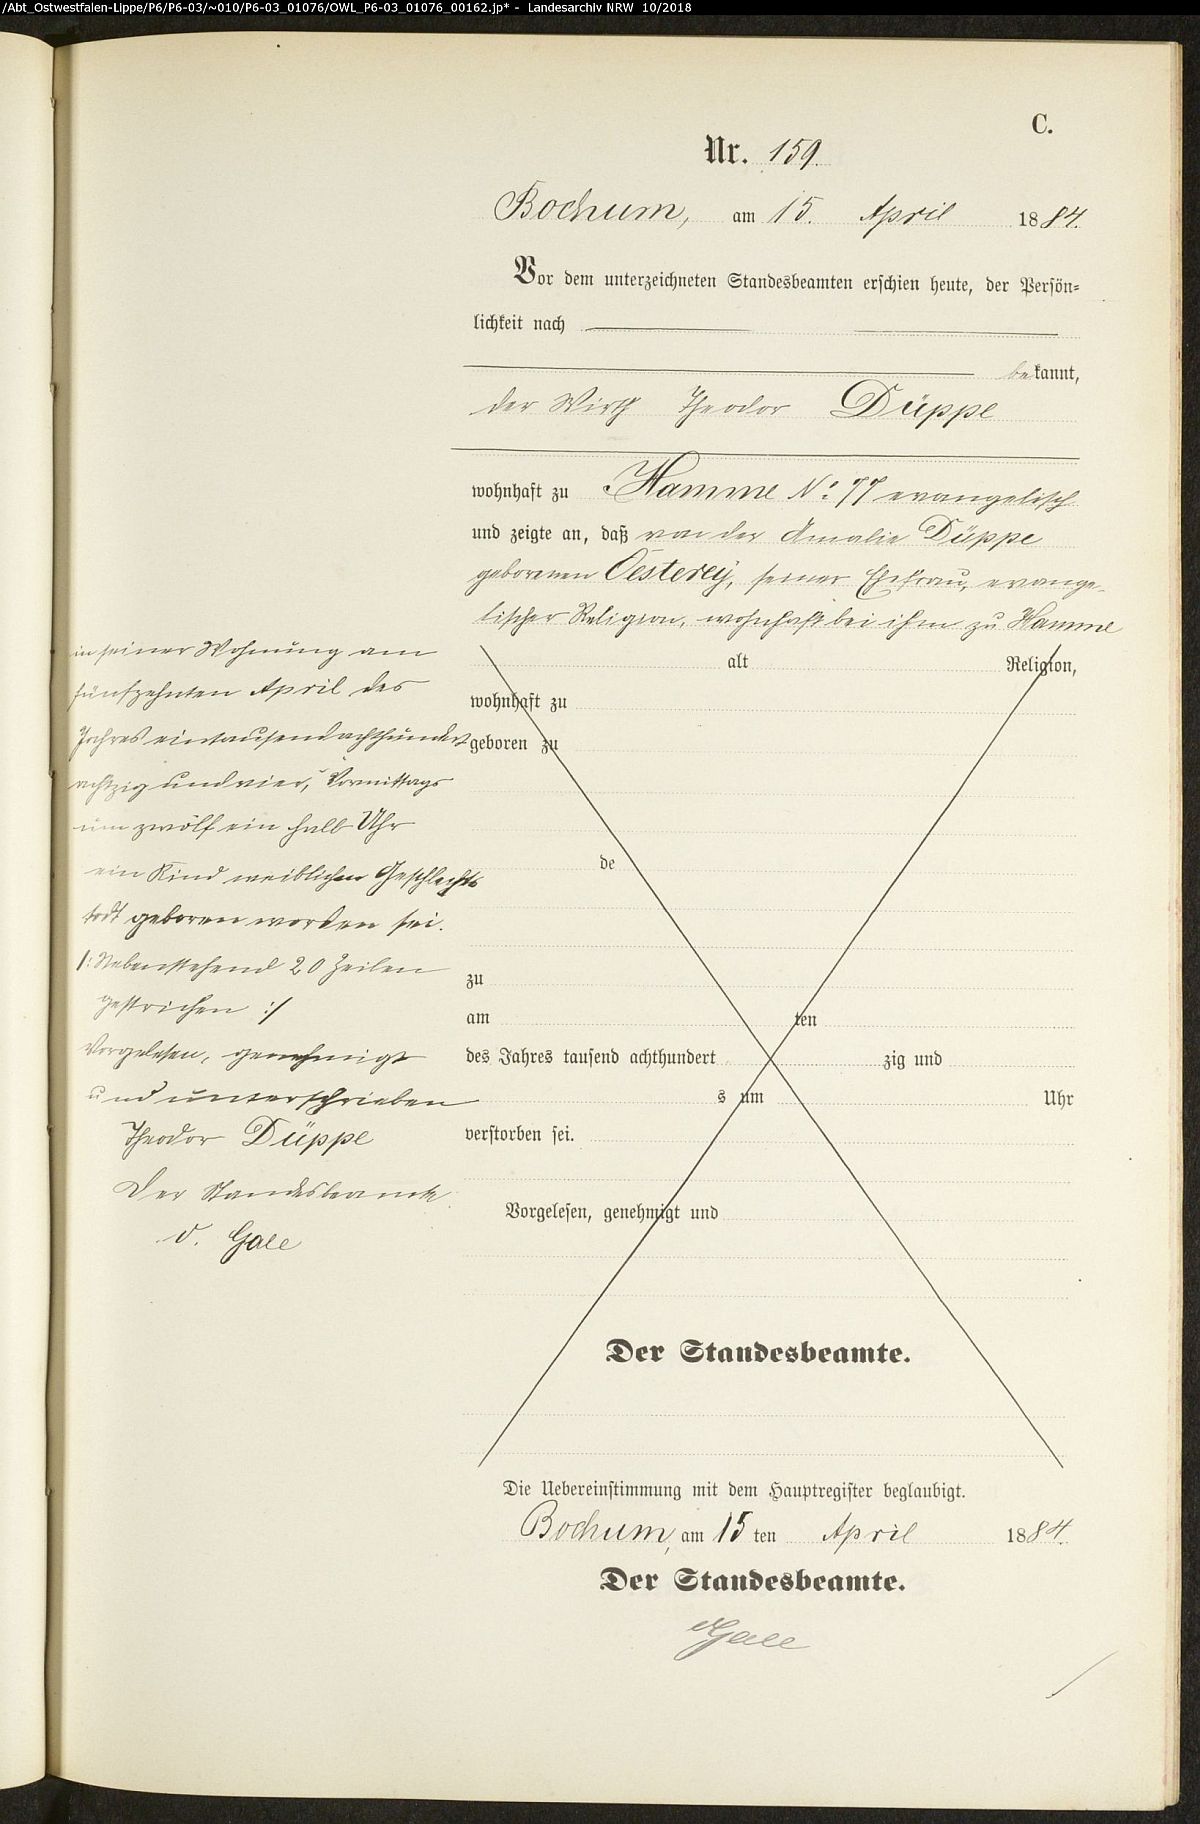 /Abt_Ostwestfalen-Lippe/P6/P6-03/~010/P6-03_01076/OWL_P6-03_01076_00162.jp* - Landesarchiv NRW 10/2018
C.
Nr. 159.
Bochum, am 15. April 1884.
Vor dem unterzeichneten Standesbeamten erschien heute, der Persön-
lichkeit nach
bekannt,
der Wirth Theodor Düppe
wohnhaft zu Hamme No: 77 evangelisch
und zeigte an, daß von der Amalie Düppe
geborenen Oesterey, seiner Ehefrau, evange-
lischer Religion, wohnhaft bei ihm zu Hamme
alt Religion,
wohnhaft zu
geboren zu
de
zu
am ten
des Jahres tausend achthundert zig und
s um Uhr
verstorben sei.
Vorgelesen, genehmigt und
Der Standesbeamte.
in seiner Wohnung am
fünfzehnten April des
Jahres eintausendachthundert
achtzig und vier, Vormittags
um zwölf ein halb Uhr
ein Kind weiblichen Geschlechts
todt geboren worden sei.
/: Nebenstehend 20 Zeilen
gestrichen :/
Vorgelesen, genehmigt
und unterschrieben
Theodor Düppe
Der Standesbeamte
Die Uebereinstimmung mit dem Hauptregister beglaubigt.
Bochum, am 15 ten April 1884.
Der Standesbeamte.